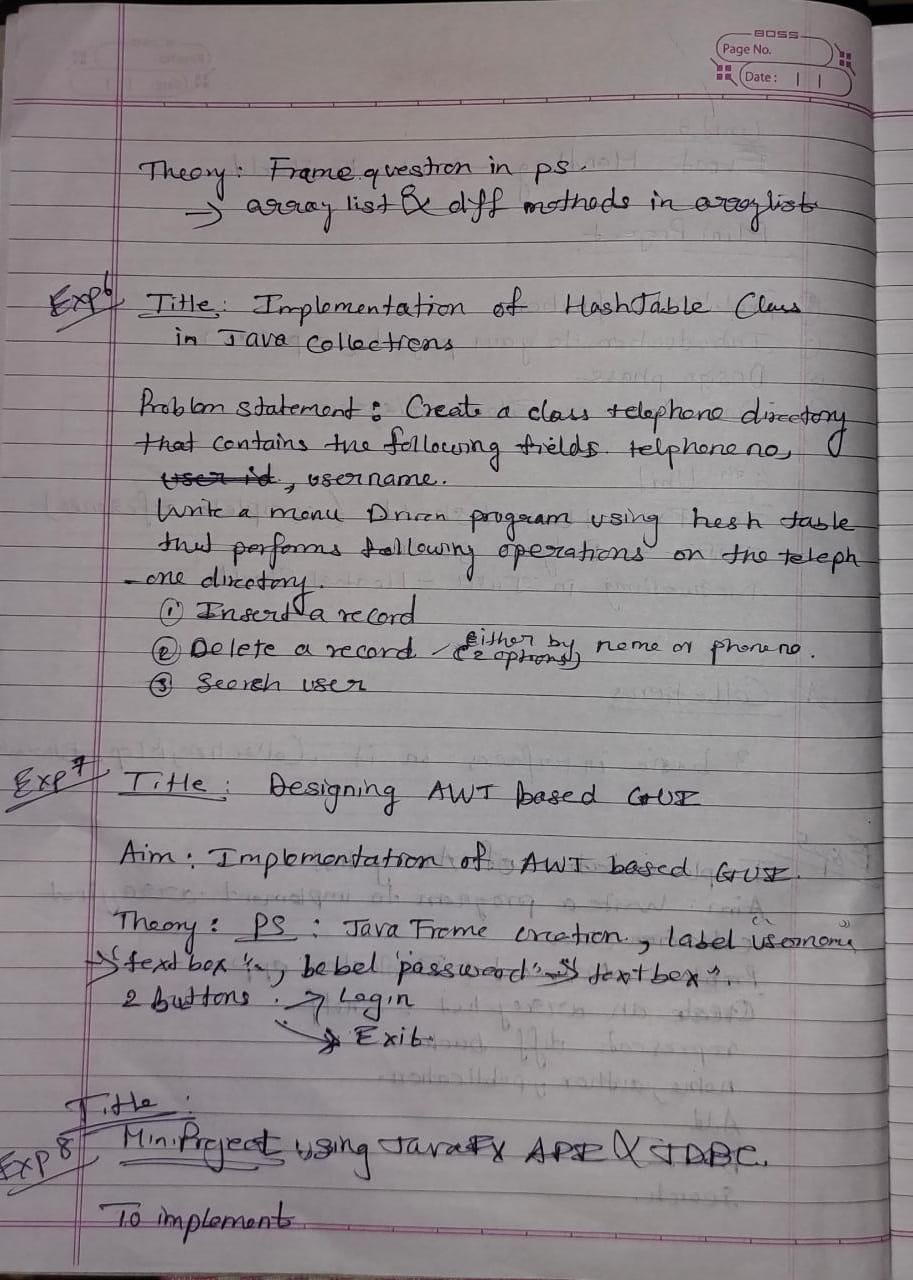 BOSS
Page No.
Date: | |
Theory: Frame question in ps.
→ array list & diff methods in arraylist
Exp 6 Title: Implementation of HashTable Class
in Java Collections
Problem statement: Create a class telephone directory
that contains the following fields. telphone no,
user id, username.
Write a menu Driven program using hesh table
that performs following operations on the teleph
-one directory.
① Insert a record
② Delete a record (either by name or phone no.
(2 options)
③ Search user
Exp 7 Title: Designing AWT based GUI
Aim: Implementation of AWT based GUI.
Theory: PS: Java Frame creation, label "username"
→ "text box", label "password" → "text box".
2 buttons. → Login
→ Exit.
Title:
Exp 8 Mini Project using JavaFX API & JDBC.
To implement